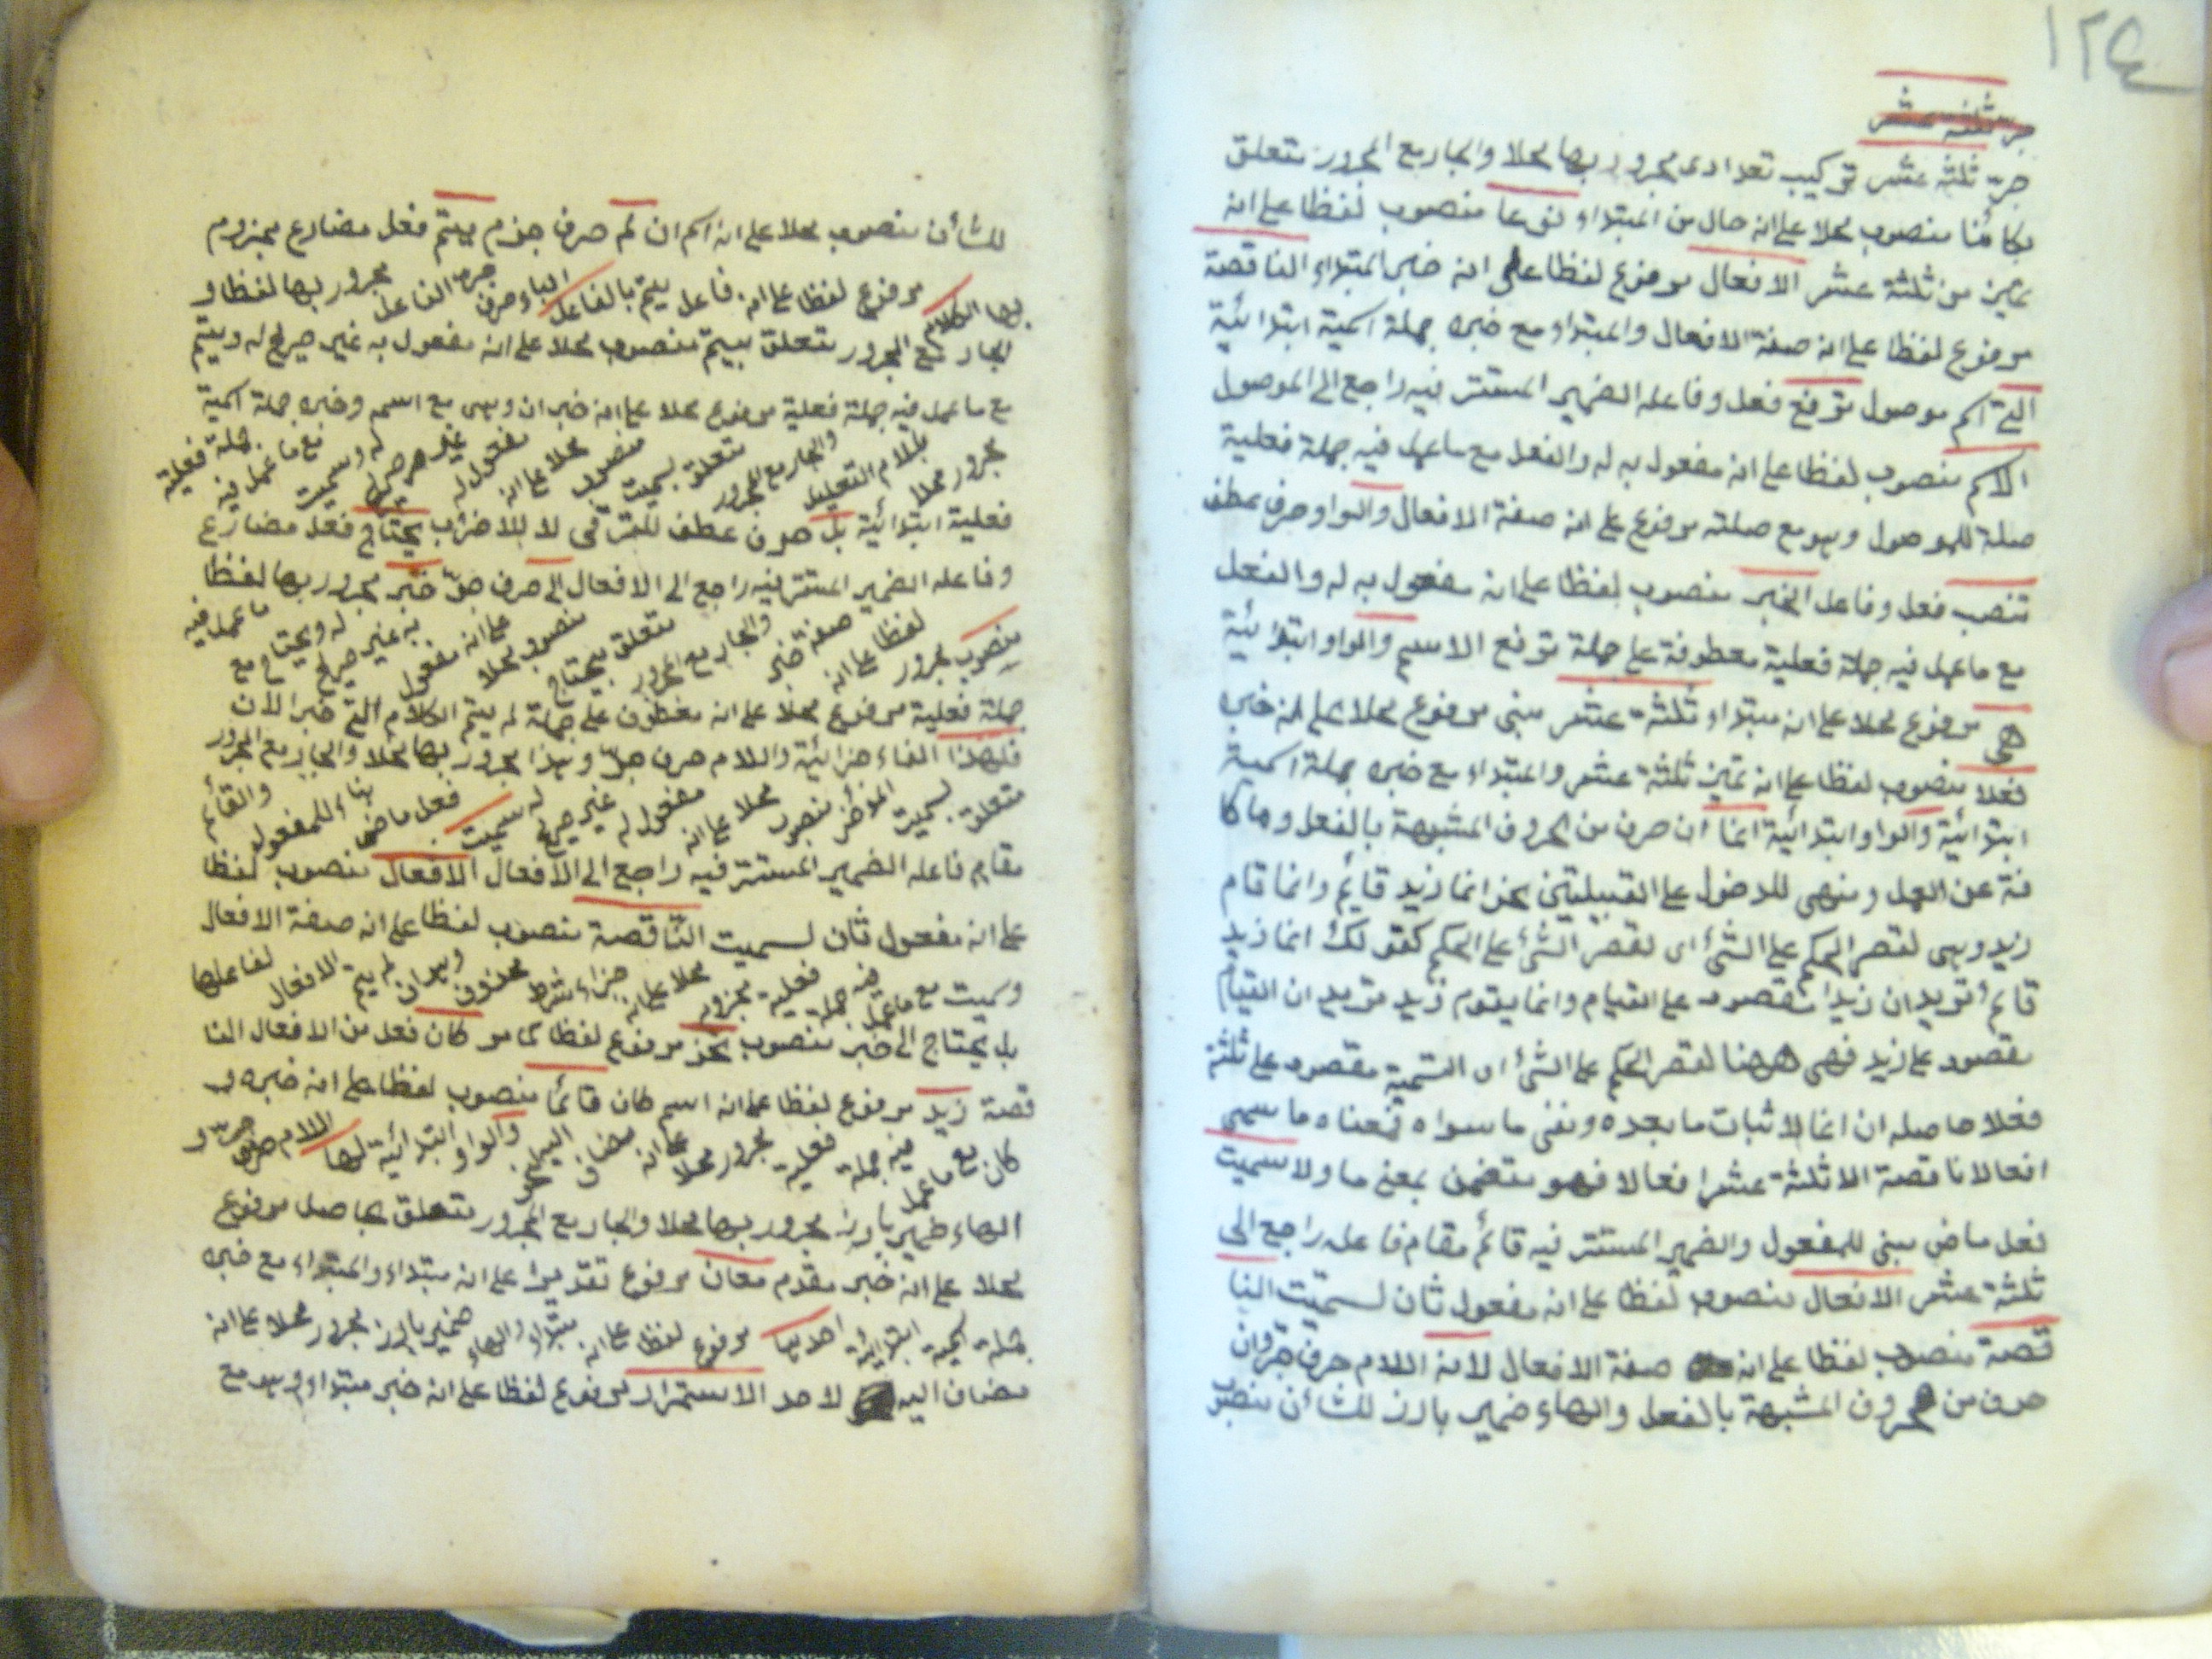 ١٢٤
جر ثلثة عشر
جر ثلثة عشر تركيب تعدادى مجرور بها محلا والجار مع المجرور متعلق
بكائنا منصوب محلا على انه حال من المبتداء نوعا منصوب لفظا على انه
تميز من ثلثة عشر الافعال مرفوع لفظا على انه خبر المبتداء الناقصة
مرفوع لفظا على انه صفة الافعال والمبتداء مع خبره جملة اسمية ابتدائية
التى اسم موصول ترفع فعل وفاعله الضمير المستتر فيه راجع الى الموصول
الاسم منصوب لفظا على انه مفعول به له والفعل مع ما عمل فيه جملة فعلية
صلة للموصول وهو مع صلته مرفوع على انه صفة الافعال والواو حرف عطف
تنصب فعل وفاعل الخبر منصوب لفظا على انه مفعول به له والفعل
مع ما عمل فيه جملة فعلية معطوفة على جملة ترفع الاسم والواو ابتدائية
هى مرفوع محلا على انه مبتداء ثلثة عشر مبنى مرفوع محلا على انه خبره
فعلا منصوب لفظا على انه تميز ثلثة عشر والمبتداء مع خبره جملة اسمية
ابتدائية والواو ابتدائية انما ان حرف من الحروف المشبهة بالفعل وما كا
فة عن العمل ومنهى للدخول على القبيلتين نحو انما زيد قائم وانما قام
زيد وهى لقصر الحكم على الشئ اى لقصر الشئ على الحكم كقولك انما زيد
قائم تريد ان زيدا مقصور على القيام وانما يقوم زيد تريد ان القيام
مقصور على زيد فهى ههنا لقصر الحكم على الشئ اى التسمية مقصور على ثلثة
فعلا حاصله ان انما لاثبات ما بعده ونفى ما سواه فمعناه ما سمى
افعالا ناقصة الا ثلثة عشر افعالا فهو متضمن بمعنى ما ولا سميت
فعل ماض مبنى للمفعول والضمير المستتر فيه قائم مقام فاعله راجع الى
ثلثة عشر الافعال منصوب لفظا على انه مفعول ثان لسميت النا
قصة منصوب لفظا على انه صفة الافعال لانه اللام حرف جر وان
حرف من حروف المشبهة بالفعل والهاء ضمير بارز للشأن منصوب
للشأن منصوب محلا على انه اسم ان لم حرف جزم يتم فعل مضارع مجزوم
بها الكلام مرفوع لفظا على انه فاعل يتم بالفاعل الباء حرف جر الفاعل مجرور بها لفظا و
الجار مع المجرور متعلق بيتم منصوب محلا على انه مفعول به غير صريح له ويتم
مع ما عمل فيه جملة فعلية مرفوع محلا على انه خبر ان وهى مع اسمه وخبره جملة اسمية
مجرور محلا بلام التعليل والجار مع المجرور متعلق بسميت منصوب محلا على انه مفعول له غير صريح له وسميت مع ما عمل فيه جملة فعلية
فعلية ابتدائية بل حرف عطف للترقى لا للاضراب يحتاج فعل مضارع
وفاعله الضمير المستتر فيه راجع الى الافعال الى حرف جر خبر مجرور بها لفظا
منصوب مجرور لفظا على انه صفة خبر والجار مع المجرور متعلق بيحتاج منصوب محلا على انه مفعول به غير صريح له ويحتاج مع ما عمل فيه
جملة فعلية مرفوع محلا على انه معطوف على جملة لم يتم الكلام التى خبر الان
فلهذا الفاء جزائية واللام حرف جر وهذا مجرور بها محلا والجار مع المجرور
متعلق بسميت المؤخر منصوب محلا على انه مفعول له غير صريح له سميت فعل ماضى بناء للمفعول والقائم
مقام فاعله الضمير المستتر فيه راجع الى الافعال الافعال منصوب لفظا
على انه مفعول ثان لسميت الناقصة منصوب لفظا على انه صفة الافعال
وسميت مع ما عمل فيه جملة فعلية مجزوم محلا على انه جزاء شرط محذوف وهو ان لم يتم الافعال لفاعلها
بل يحتاج الى خبر منصوب نحو مرفوع لفظا كما مر كان فعل من الافعال النا
قصة زيد مرفوع لفظا على انه اسم كان قائما منصوب لفظا على انه خبره و
كان مع ما عمل فيه جملة فعلية مجرور محلا على انه مضاف اليه لنحو والواو ابتدائية لها اللام حرف جر و
الهاء ضمير بارز مجرور بها محلا والجار مع المجرور متعلق بحاصل مرفوع
محلا على انه خبر مقدم معان مرفوع تقديرا على انه مبتداء والمبتداء مع خبره
جملة اسمية ابتدائية احديها مرفوع لفظا على انه مبتداء والهاء ضمير بارز مجرور محلا على انه
مضاف اليه لاحد الاستمرار مرفوع لفظا على انه خبر مبتداء وهو مع